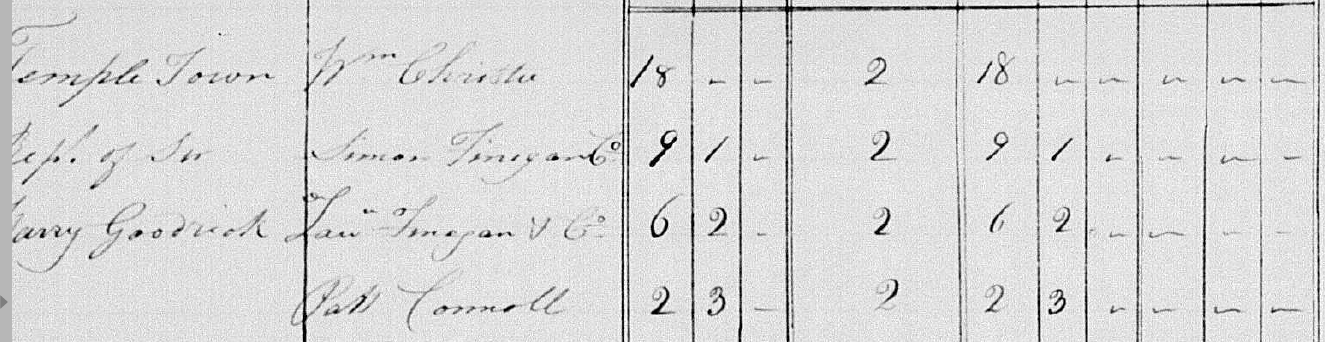 Temple Town Wm Christie 18 - - 2 18 - - - - -
Rep. of Sir Simon Finegan Co 9 1 - 2 9 1 - - - -
Harry Goodrick Lau Finegan & Co 6 2 - 2 6 2 - - - -
Patt Connoll 2 3 - 2 2 3 - - - -